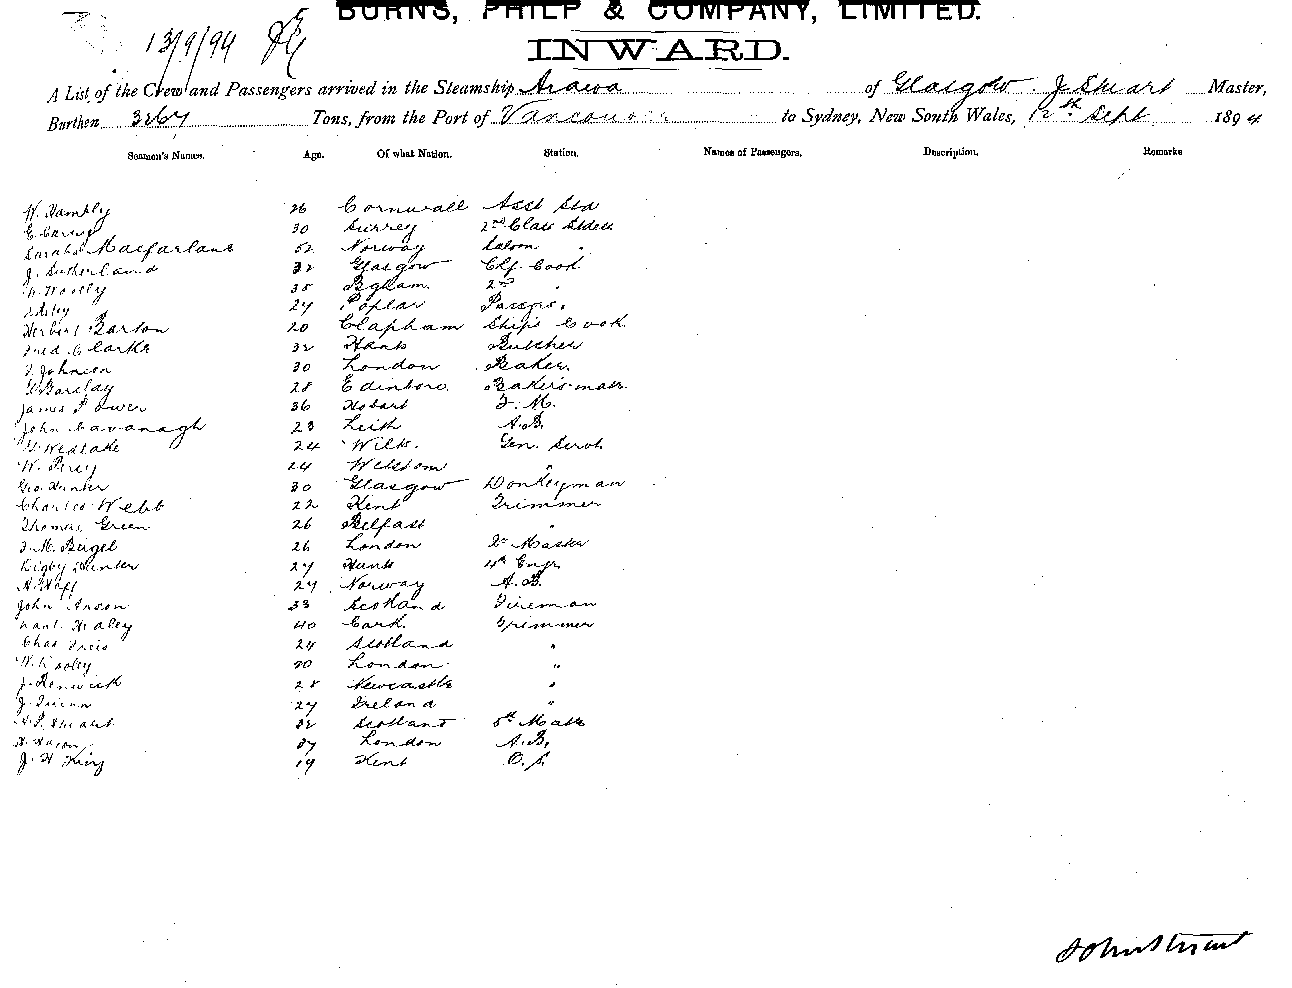 BURNS, PHILP & COMPANY, LIMITED.
13/9/94
INWARD.
A List of the Crew and Passengers arrived in the Steamship Arawa of Glasgow J Stuart Master,
Burthen 3267 Tons, from the Port of Vancouver to Sydney, New South Wales, 12th Sept 1894
Seamen's Names. Age. Of what Nation. Station. Names of Passengers. Description. Remarks
W. Hambly 26 Cornwall Asst Std
E. Carey 30 Surrey 2nd Class Stdess
Sarah Macfarlane 52 Norway Saloon "
J. Sutherland 32 Glasgow Chf. Cook
W. Woolly 35 Bgham. 2nd "
27 Poplar
Herbert Barton 20 Clapham Ships Cook
Fred Clarke 32 Hants Butcher
J. Johnson 30 London Baker.
Barclay 28 Edinboro. Baker's mate.
James Power 36 Hobart
John Cavanagh 23 Leith A.B.
Westlake 24 Wilts. Gen. Servt.
W. Percy 24 "
Geo. Hunter 30 Glasgow Donkeyman
Charles Webb 22 Kent Trimmer
Thomas Green 26 Belfast "
26 London
Rigby Hunter 27 Hants 4th Engr.
27 Norway A.B.
John Anson 33 Scotland Fireman
Healey 40 Cork. Trimmer
Chas 24 Scotland "
W. Cooley 20 London "
J. Renwick 28 Newcastle "
J. Quinn 27 Ireland "
Stuart 32 Scotland 5th Mate
37 London A.B.
J. H King 19 Kent O.S.
John Stuart